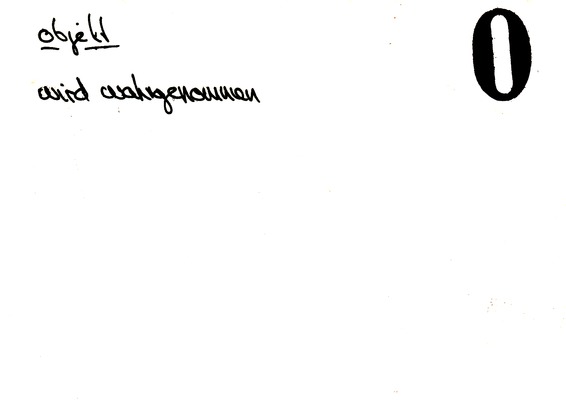 objekt
0
wird wahrgenommen